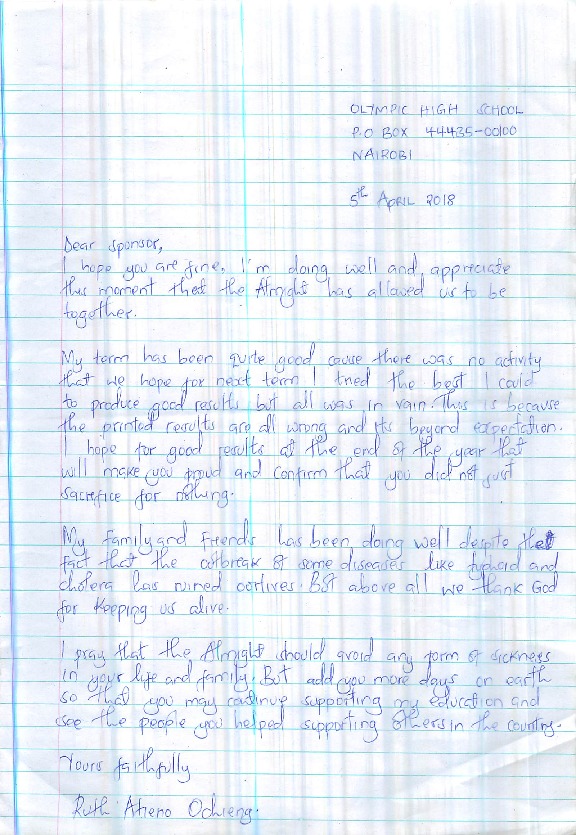 OLYMPIC HIGH SCHOOL
P.O BOX 44435-00100
NAIROBI
5th APRIL 2018
Dear sponsor,
I hope you are fine. I'm doing well and appreciate
this moment that the Almight has allowed us to be
together.
My term has been quite good cause there was no activity
that we hope for next term I tried the best I could
to produce good results but all was in vain. This is because
the printed results are all wrong and its beyond expertation.
I hope for good results at the end of the year that
will make you proud and confirm that you did not just
sacrifice for nothing.
My family and Friends has been doing well despite the
fact that the outbreak of some diseases like typhoid and
cholera has ruined our lives. But above all we thank God
for keeping us alive.
I pray that the Almight should avoid any form of sickness
in your life and family. But add you more days on earth
so that you may continue supporting my education and
see the people you helped supporting others in the country.
Yours faithfully
Ruth Atieno Ochieng.